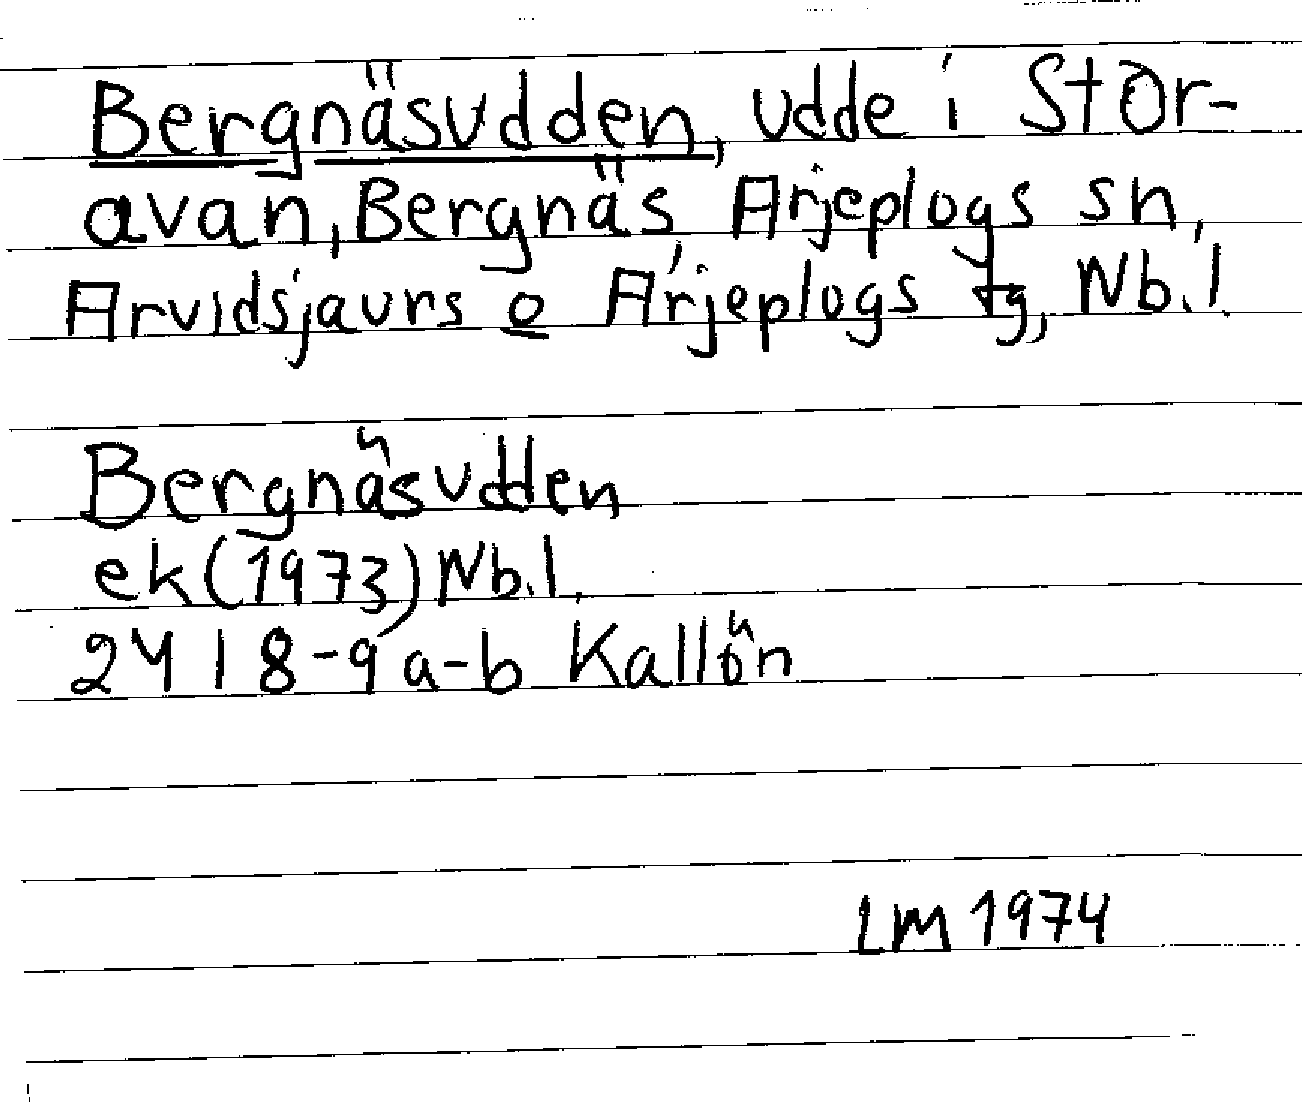 Bergnäsudden, udde i Stor-
avan, Bergnäs, Arjeplogs sn,
Arvidsjaurs o Arjeplogs tg, Nb.l.
Bergnäsudden
ek (1973) Nb.l.
24 I 8-9 a-b Kallön
LM 1974